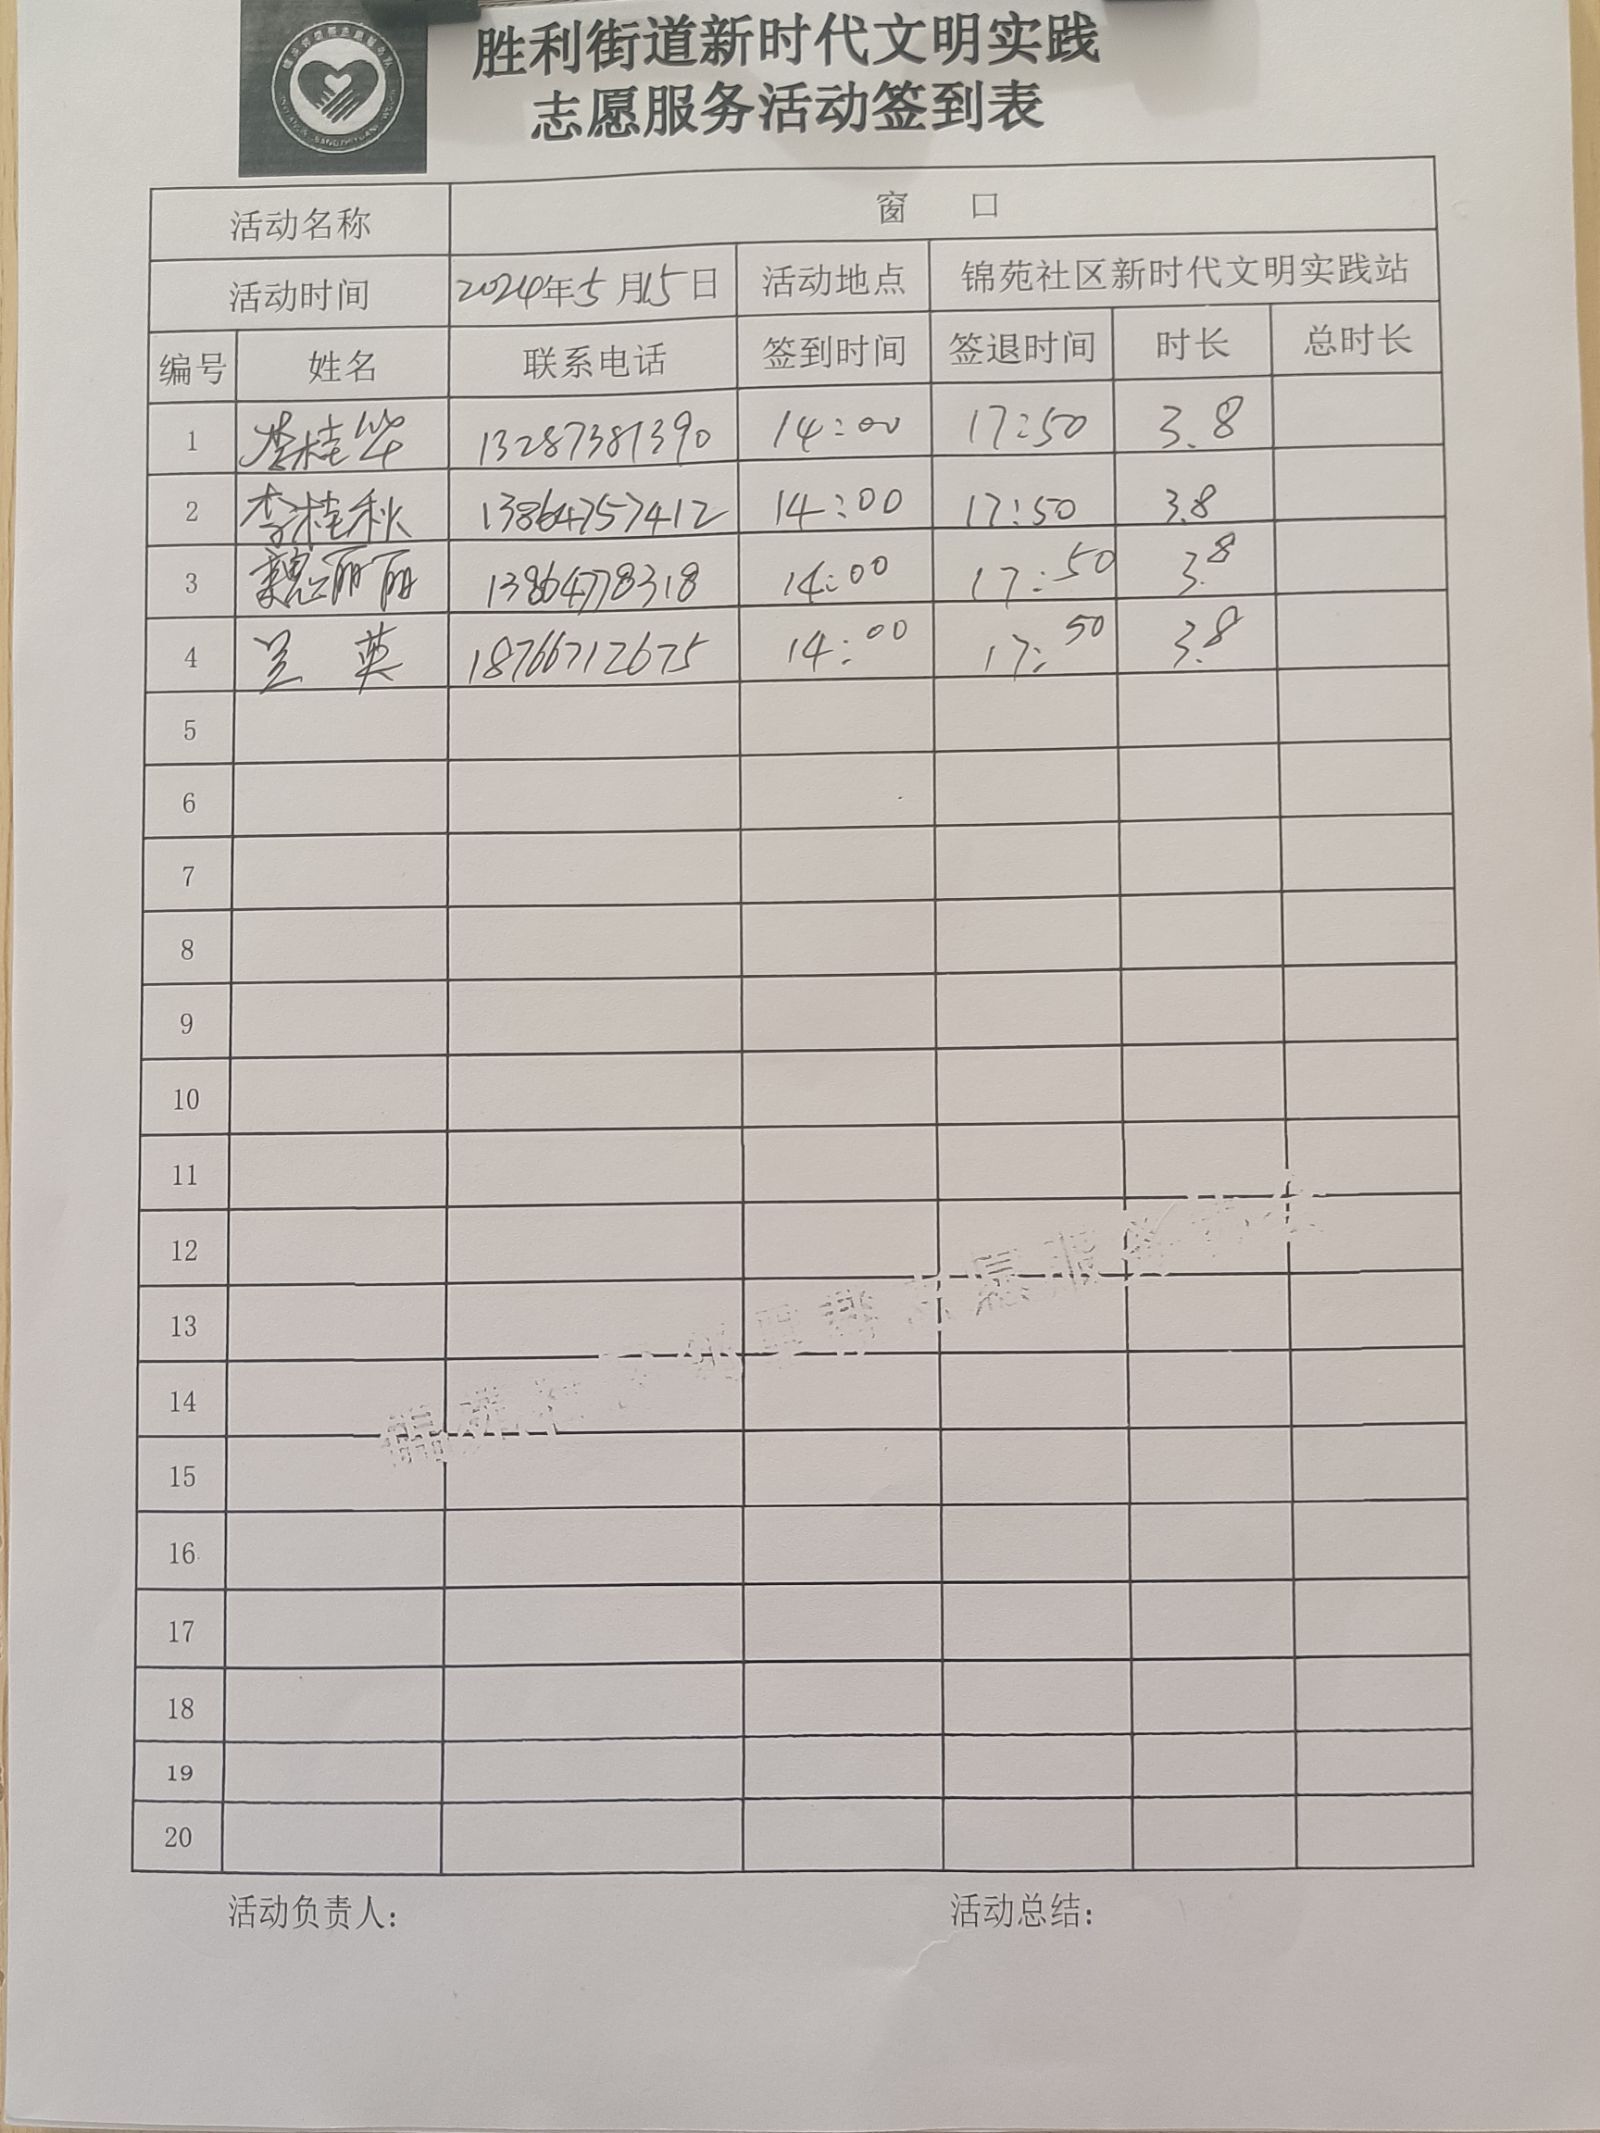 胜利街道新时代文明实践
志愿服务活动签到表
活动名称 窗 口
活动时间 2024年5月15日 活动地点 锦苑社区新时代文明实践站
编号 姓名 联系电话 签到时间 签退时间 时长 总时长
1 李桂华 13287381390 14:00 17:50 3.8
2 李桂秋 13864757412 14:00 17:50 3.8
3 魏丽丽 13864778318 14:00 17:50 3.8
4 兰英 18766712675 14:00 17:50 3.8
5
6
7
8
9
10
11
12
13
14
15
16
17
18
19
20
活动负责人: 活动总结: